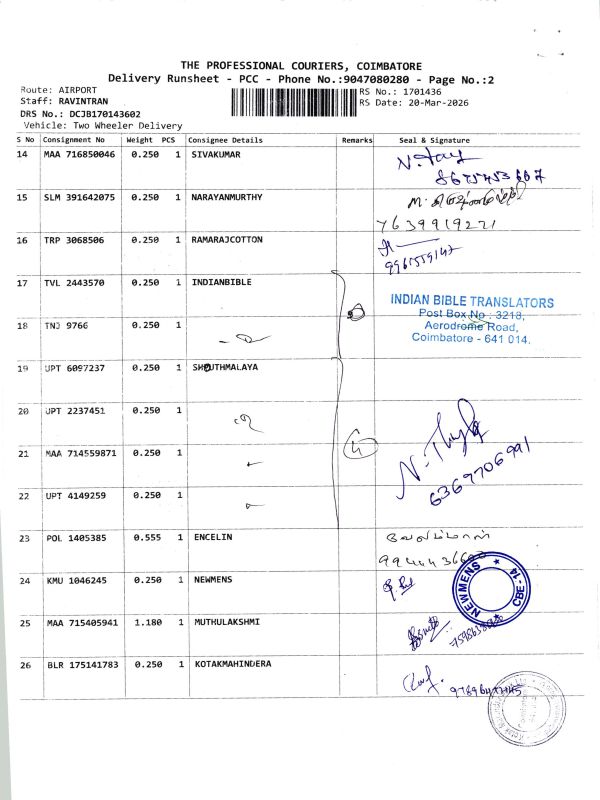 THE PROFESSIONAL COURIERS, COIMBATORE
Delivery Runsheet - PCC - Phone No.:9047080280 - Page No.:2
Route: AIRPORT
RS No.: 1701436
Staff: RAVINTRAN
RS Date: 20-Mar-2026
DRS No.: DCJB170143602
Vehicle: Two Wheeler Delivery
S No Consignment No Weight PCS Consignee Details Remarks Seal & Signature
14 MAA 716850046 0.250 1 SIVAKUMAR
8675453667
15 SLM 391642075 0.250 1 NARAYANMURTHY
7639919271
16 TRP 3068506 0.250 1 RAMARAJCOTTON
17 TVL 2443570 0.250 1 INDIANBIBLE
INDIAN BIBLE TRANSLATORS
Post Box No : 3218,
Aerodrome Road,
Coimbatore - 641 014.
18 TNJ 9766 0.250 1
19 UPT 6097237 0.250 1 SHOUTHMALAYA
20 UPT 2237451 0.250 1
21 MAA 714559871 0.250 1
4
22 UPT 4149259 0.250 1
6369706991
23 POL 1405385 0.555 1 ENCELIN
வேலம்மாள்
24 KMU 1046245 0.250 1 NEWMENS
NEWMENS CBE-14
25 MAA 715405941 1.180 1 MUTHULAKSHMI
26 BLR 175141783 0.250 1 KOTAKMAHINDERA